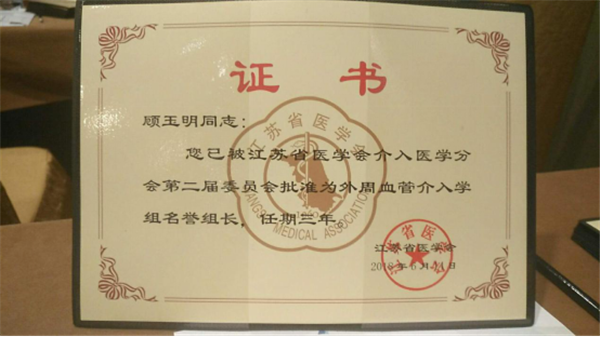 证 书
顾玉明同志：
您已被江苏省医学会介入医学分
会第二届委员会批准为外周血管介入学
组名誉组长，任期三年。
江苏省医学会
年6月 日
江苏省医学会
MEDICAL ASSOCIATION
江苏省医学会